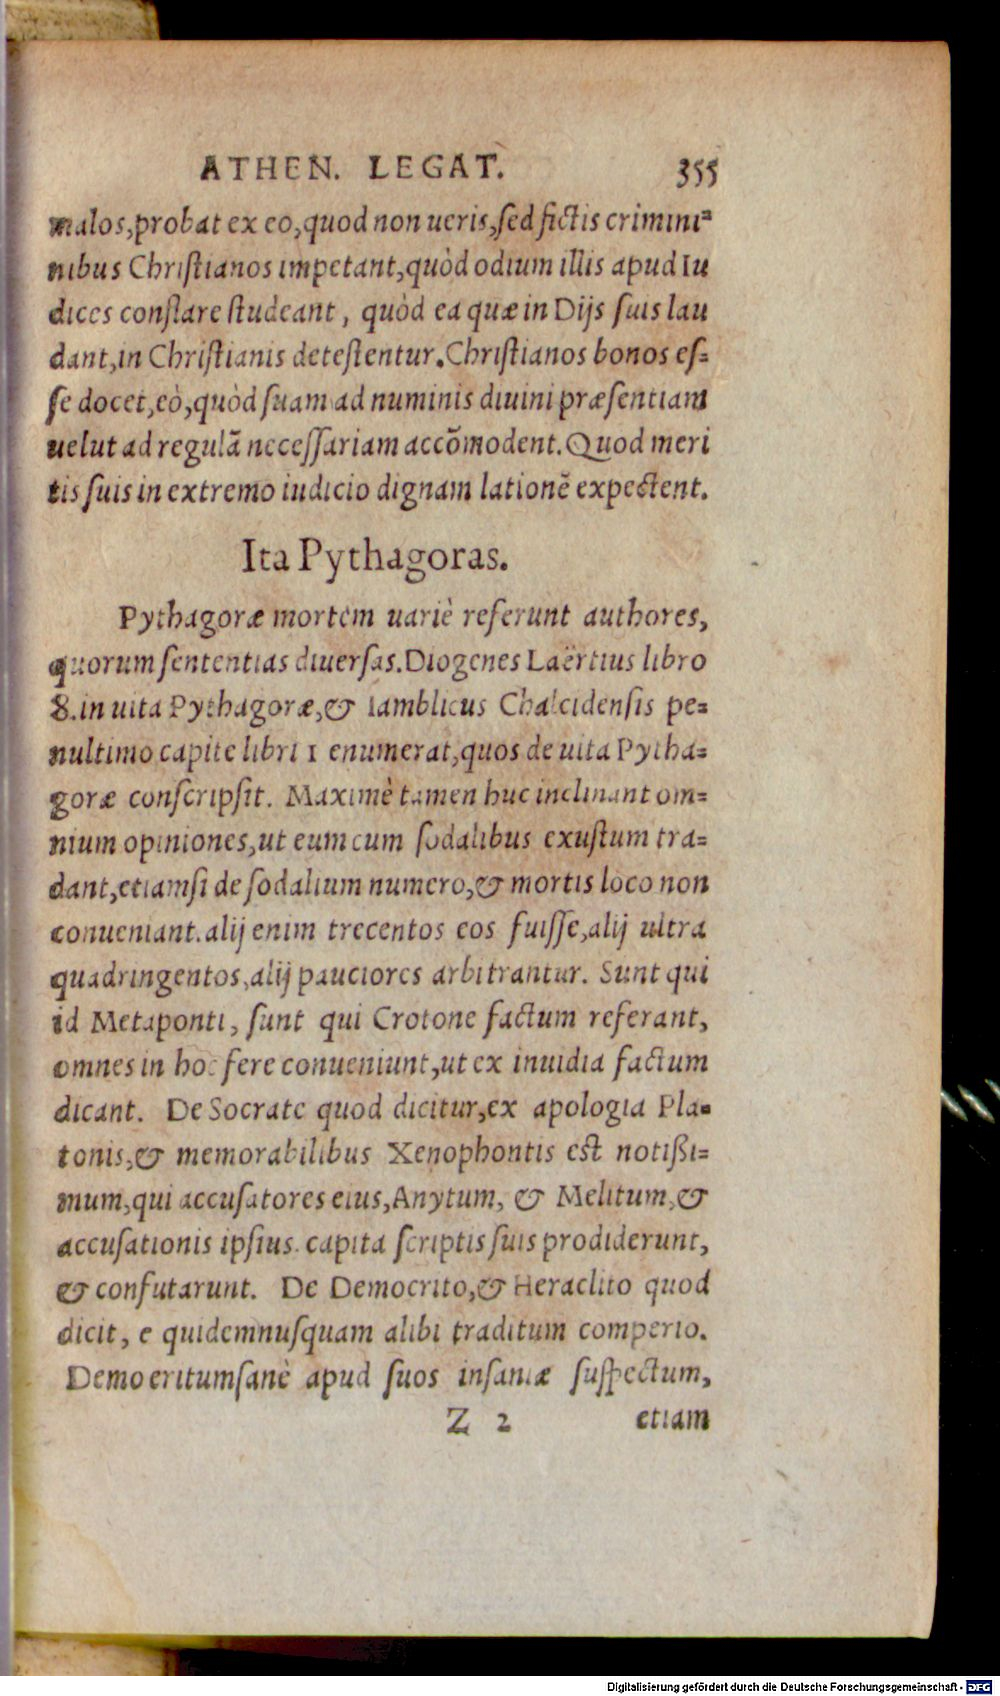 ATHEN. LEGAT. 355
malos,probat ex eo,quod non ueris,ſed fictis crimini⸗
nibus Chriſtianos impetant,quòd odium illis apud Iu
dices conflare ſtudeant, quòd ea quæ in Dijs ſuis lau
dant,in Chriſtianis deteſtentur.Chriſtianos bonos eſ⸗
ſe docet,eò,quòd ſuam ad numinis diuini præſentiam
uelut ad regulã neceſſariam accõmodent.Quod meri
tis ſuis in extremo iudicio dignam lationẽ expectent.
Ita Pythagoras.
Pythagoræ mortem uariè referunt authores,
quorum ſententias diuerſas.Diogenes Laërtius libro
8.in uita Pythagoræ,& Iamblicus Chalcidenſis pe⸗
nultimo capite libri 1 enumerat,quos de uita Pytha⸗
goræ conſcripſit. Maximè tamen huc inclinant om⸗
nium opiniones,ut eum cum ſodalibus exuſtum tra⸗
dant,etiamſi de ſodalium numero,& mortis loco non
conueniant.alij enim trecentos eos fuiſſe,alij ultra
quadringentos,alij pauciores arbitrantur. Sunt qui
id Metaponti, ſunt qui Crotone factum referant,
omnes in hoc fere conueniunt,ut ex inuidia factum
dicant. De Socrate quod dicitur,ex apologia Pla⸗
tonis,& memorabilibus Xenophontis est notißi⸗
mum,qui accuſatores eius,Anytum, & Melitum,&
accuſationis ipſius capita ſcriptis ſuis prodiderunt,
& confutarunt. De Democrito,& Heraclito quod
dicit, e quidemnuſquam alibi traditum comperio.
Demo eritumſanè apud ſuos inſaniæ ſuſpectum,
Z 2 etiam
Digitalisierung gefördert durch die Deutsche Forschungsgemeinschaft - DFG